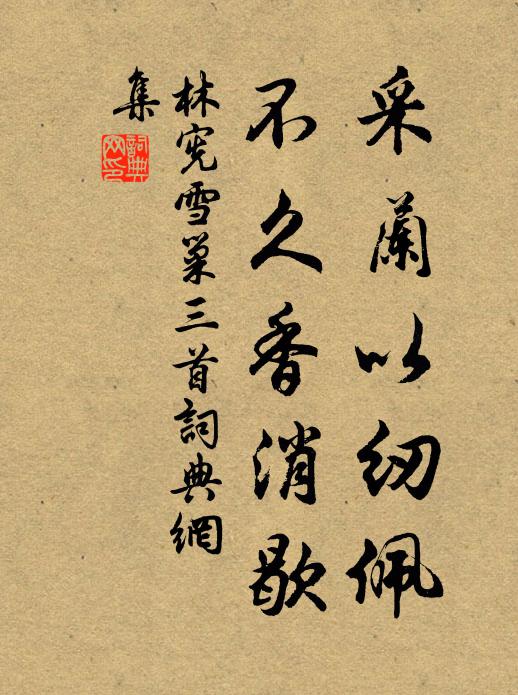 采蘭以紉佩
不久香消歇
林宪雪巢三首詞典網
集
詞典
网印